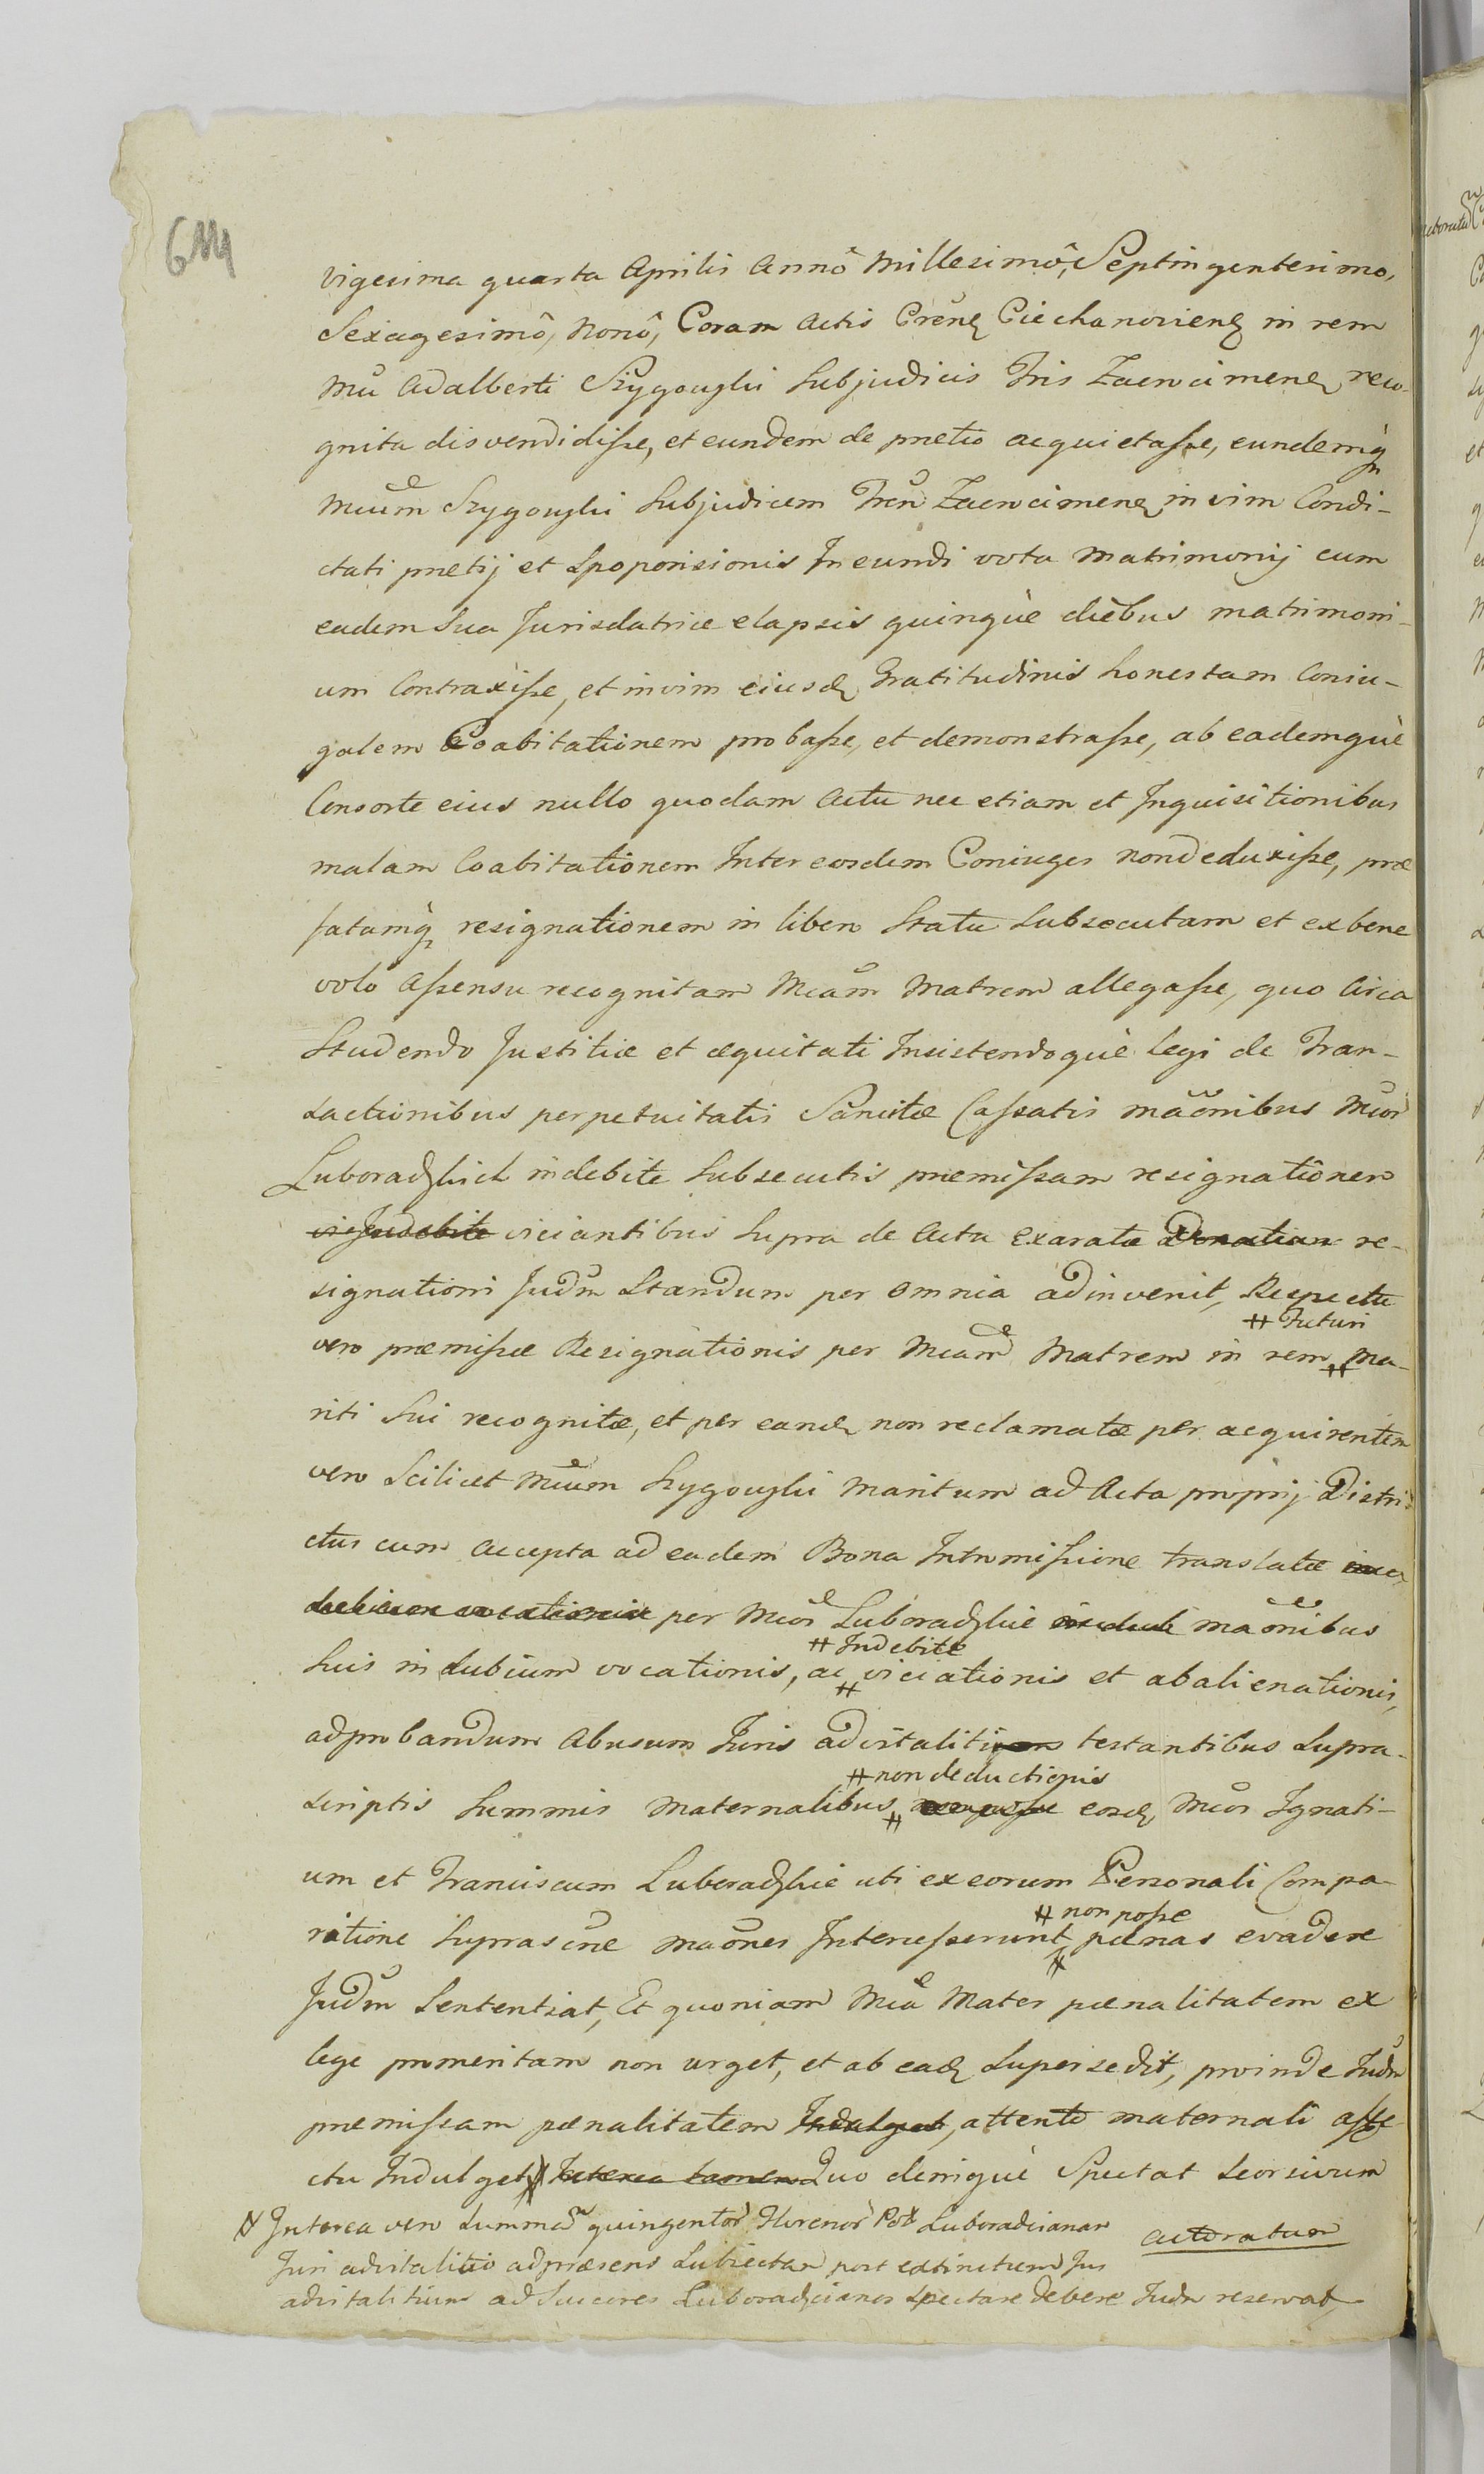 614
vigesima quarta Aprilis Annô Millesimô, Septingentesimo,
Sexagesimô, Nonô, Coram Actis Crenȝ Ciechanovienȝ in rem
Mci Adalberti Szygowski Subjudicis Tris Zacrocimenȝ reco-
gnita disvendidisse, et eundem de pretio acquietasse, eundemq
Mcum Szygowski Subjudicem Tren Zacrocimenȝ in vim Condi-
ctati pretij et Spoponsionis Ineundi vota Matrimonij cum
eadem Sua Jurisdatrice elapsis quinquè diebus matrimoni-
um Contraxisse, et in vim eiusd Gratitudinis honestam Coniu-
galem Coabitationem probasse, et demonstrasse, ab eademquè
Consorte eius nullo quodam Actu nec etiam et Inquisitionibus
malam Coabitationem Inter eosdem Coniuges non deduxisse, præ
fatamq resignationem in libero Statu Subsecutam et ex bene
volo Assensu recognitam Mcam Matrem allegasse, quo Circa
Studendo Justitiæ et æquitati Insistendoquè legi de Tran-
sactionibus perpetuitatis Sancitæ Cassatis mãonibus Mcor
Luboradzkich indebite Subsecutis præmissam resignationem
Indebite viciantibus Supra de Actu exaratæ Donation re-
signationi Judm Standum per omnia adinvenit, Respectu
# Futuri
vero præmissæ Resignationis per Mcam Matrem in rem # ma-
riti Sui recognitæ, et per eand non reclamatæ per acquirentem
vero Scilicet Mcum Szygowski Maritum ad Acta proprij Distri-
ctus cum accepta ad eadem Bona Intromissione translatæ
per Mcos Luboradzkie maonibus
# Indebite
Suis in dubium vocationis, ac # viciationis et abalienationis,
ad probandum Abusum Juris advitalitij testantibus Supra-
# non deductionis
scriptis Summis Maternalibus # eosd Mcos Ignati-
um et Franciscum Luboradzkie uti ex eorum Personali Compa-
# non posse
ritione Suprascrie maones Interesserunt # pœnas evadere
Judm Sententiat, Et quoniam Mca Mater pœnalitatem ex
lege promeritam non urget, et ab ead Supersedit, proinde Judm
præmissam pœnalitatem Indulget, attento maternali affe-
ctu Indulget # Interea tamen Quo deniquè Spectat Seorsivum
# Interea vero Summam quingentor Florenor Pol Luboradcianam
actoratum
Juri advitalitio ad præsens Subiectam post extinctum Jus
advitalitium ad Succores Luboradzcianos Spectare debere Judm reservat,